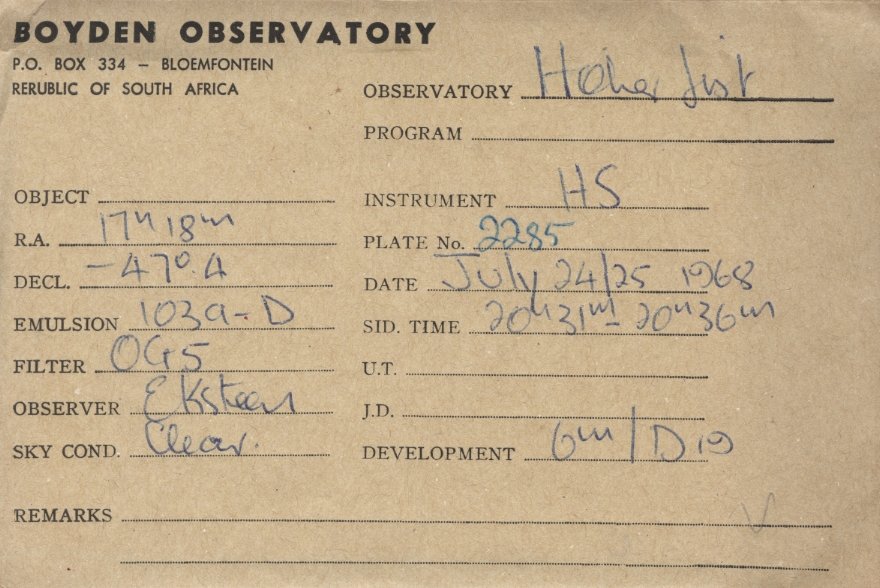 BOYDEN OBSERVATORY
P.O. BOX 334 – BLOEMFONTEIN
RERUBLIC OF SOUTH AFRICA
OBSERVATORY Hoher List
PROGRAM
OBJECT
INSTRUMENT HS
R.A. 17h 18m
PLATE No. 2285
DECL. -47°.4
DATE July 24/25 1968
EMULSION 103a-D
SID. TIME 20h31m - 20h36m
FILTER OG5
U.T.
OBSERVER Eksteen
J.D.
SKY COND. Clear.
DEVELOPMENT 6m/D19
REMARKS